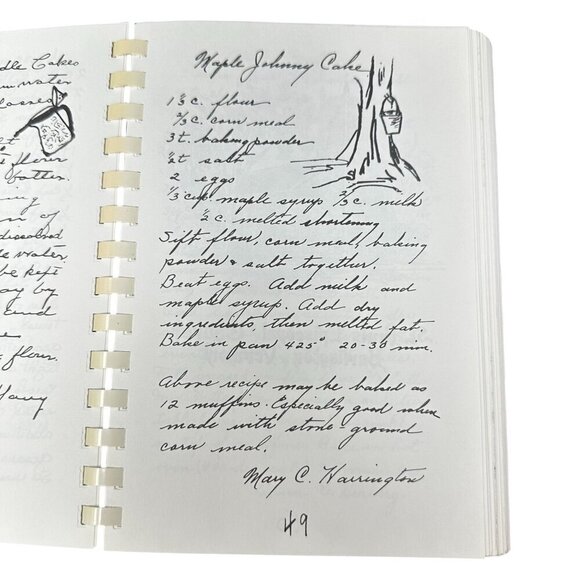 dle Cakes
water
lasses
flour
batter.
ing
n of
dissolved
e water
be kept
ay by
end
e
flour.
Maple Johnny Cake
1 1/3 c. flour
2/3 c. corn meal
3 t. baking powder
1/2 t salt
2 eggs
1/3 cup maple syrup 2/3 c. milk
1/2 c. melted shortening
Sift flour, corn meal, baking
powder & salt together.
Beat eggs. Add milk and
maple syrup. Add dry
ingredients, then melted fat.
Bake in pan 425° 20-30 min.
Above recipe may be baked as
12 muffins. Especially good when
made with stone ground
corn meal.
Mary C. Harrington
49